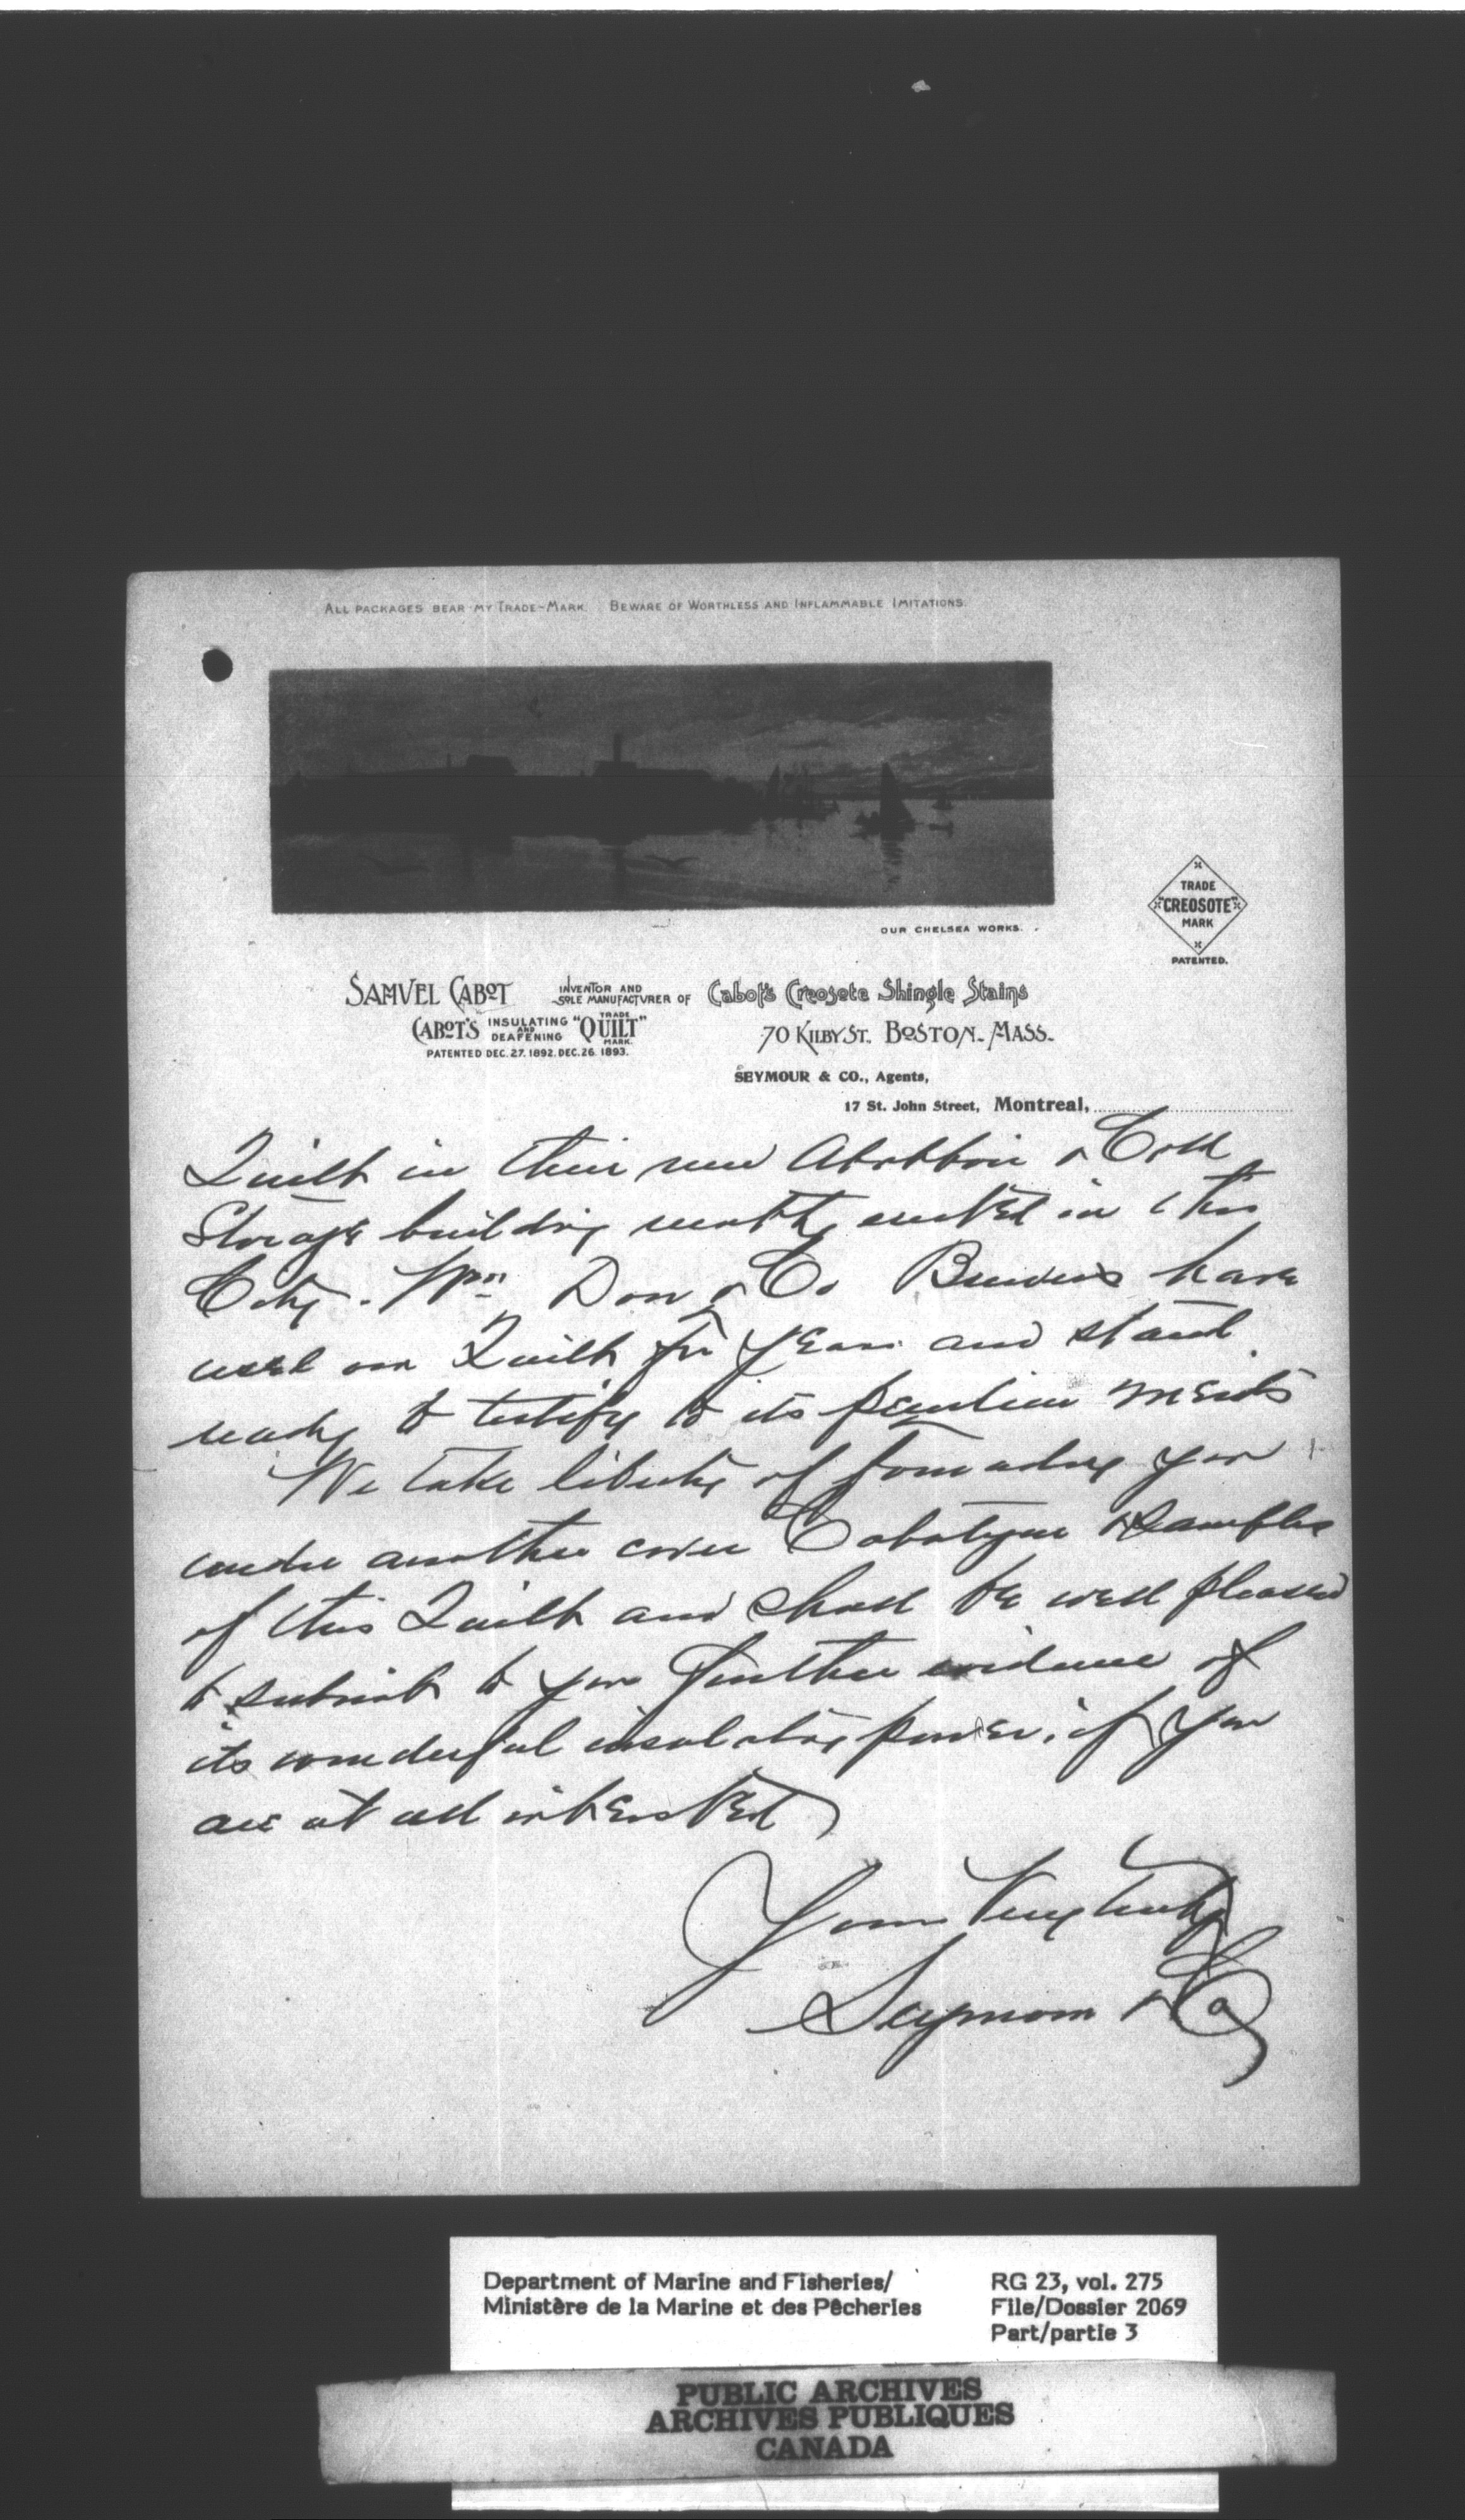 ALL PACKAGES BEAR MY TRADE-MARK. BEWARE OF WORTHLESS AND INFLAMMABLE IMITATIONS.
OUR CHELSEA WORKS.
TRADE
"CREOSOTE"
MARK
PATENTED.
SAMVEL CABOT INVENTOR AND SOLE MANUFACTVRER OF Cabot's Creosote Shingle Stains
CABOT'S INSULATING AND DEAFENING "QUILT" TRADE MARK.
PATENTED DEC. 27. 1892. DEC. 26. 1893.
70 KILBY ST. BOSTON - MASS.
SEYMOUR & CO., Agents,
17 St. John Street, Montreal,
Quilt in their new Abattoir & Cold
Storage building erected in this
City. Wm Dow & Co Brewers have
used our Quilt for years and stand
ready to testify to its peculiar merits
We take liberty of forwarding you
under another cover Catalogue & samples
of this Quilt and shall be well pleased
to submit to you further evidence of
its wonderful insulating power, if you
are at all interested
Yours Very truly
Seymour & Co
Department of Marine and Fisheries/
Ministère de la Marine et des Pêcheries
RG 23, vol. 275
File/Dossier 2069
Part/partie 3
PUBLIC ARCHIVES
ARCHIVES PUBLIQUES
CANADA